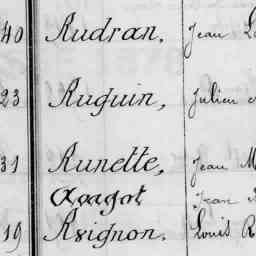 40 Audran, Jean
23 Auguin, Julien
31 Aunette, Jean M
Avagot Jean
19 Avignon. Louis R